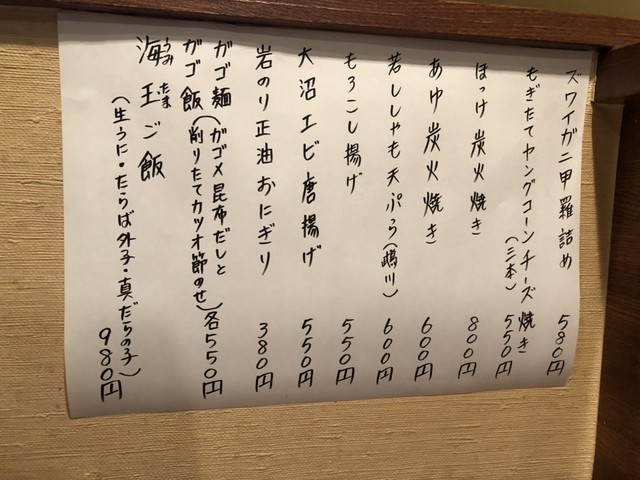 ズワイガニ甲羅詰め 580円
もぎたてヤングコーンチーズ焼き
(三本) 550円
ほっけ炭火焼き 800円
あゆ炭火焼き 600円
若ししゃも天ぷら(鵡川) 600円
もろこし揚げ 550円
大沼エビ唐揚げ 550円
岩のり正油おにぎり 380円
ガゴ麺
ガゴ飯
(ガゴメ昆布だしと
削りたてカツオ節のせ) 各550円
海王ご飯
うみたま
(生うに・たらば外子・真だらの子)
980円